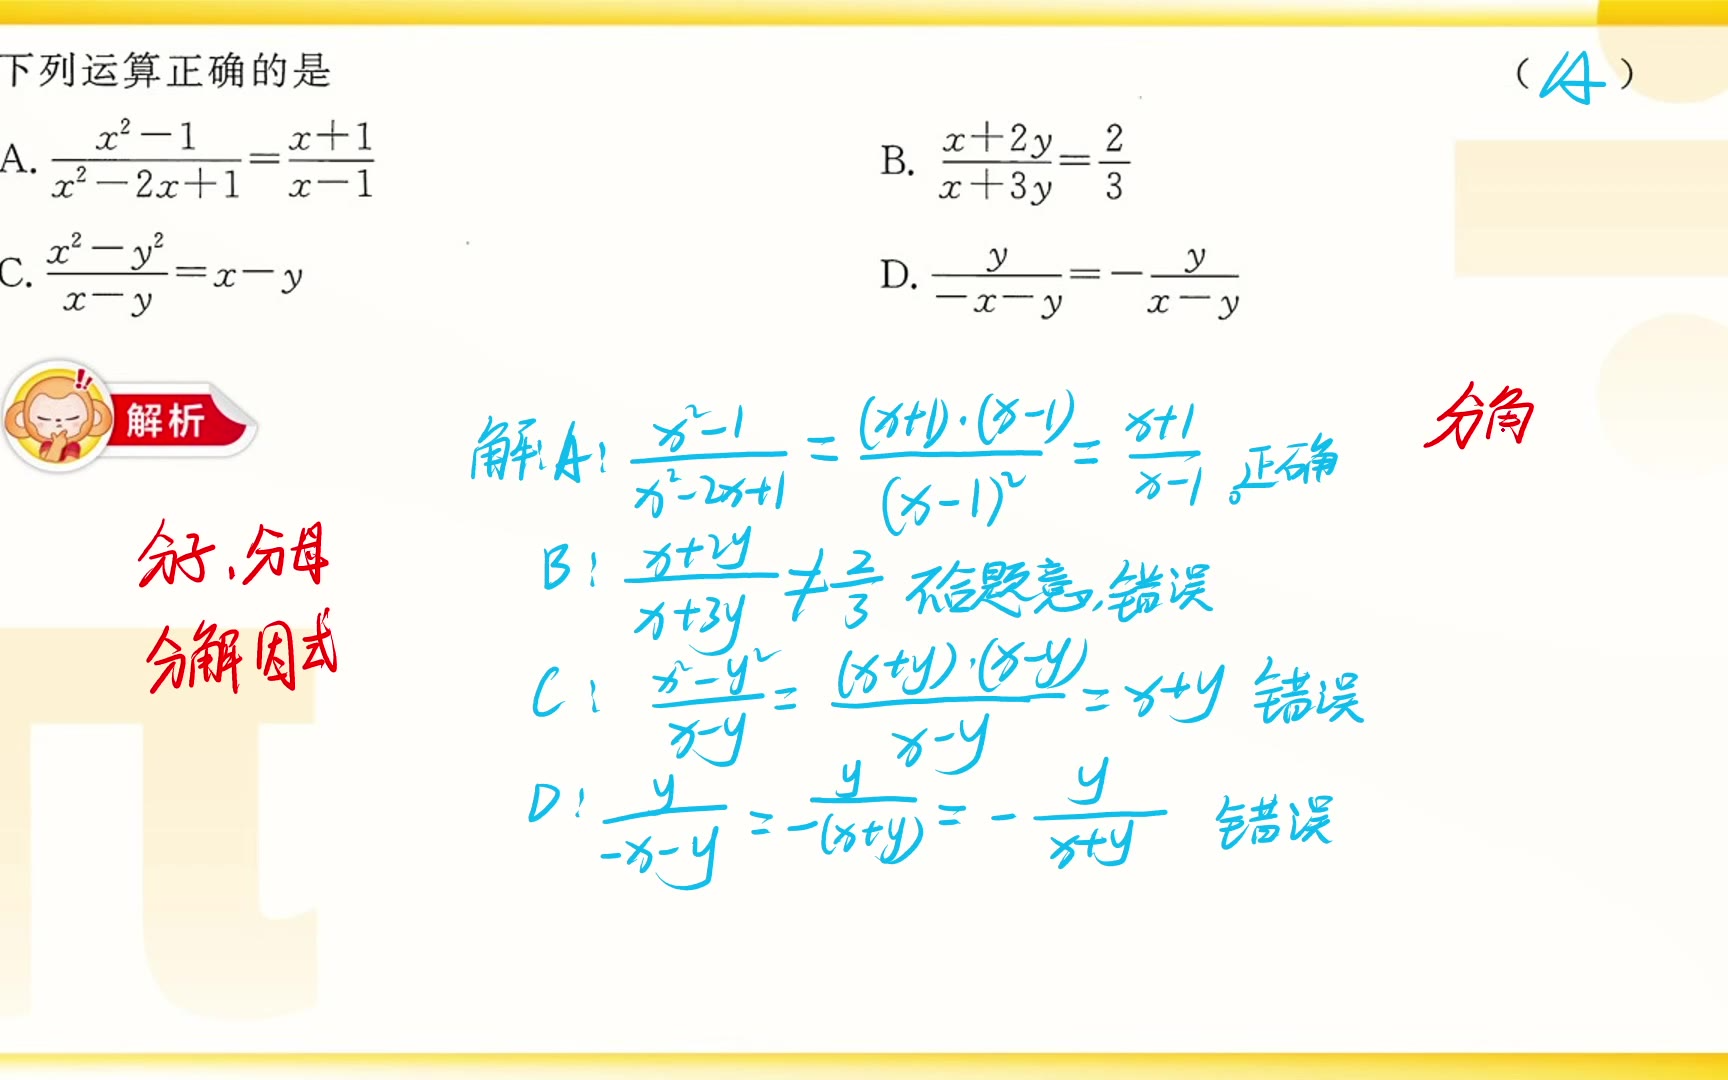 下列运算正确的是 （A）
A. \frac{x²-1}{x²-2x+1}=\frac{x+1}{x-1} B. \frac{x+2y}{x+3y}=\frac{2}{3}
C. \frac{x²-y²}{x-y}=x-y D. \frac{y}{-x-y}=-\frac{y}{x-y}
解析
分角
解:A: \frac{x²-1}{x²-2x+1}=\frac{(x+1)·(x-1)}{(x-1)²}=\frac{x+1}{x-1}。正确
分子、分母
B: \frac{x+2y}{x+3y}≠\frac{2}{3} 不合题意,错误
分解因式
C: \frac{x²-y²}{x-y}=\frac{(x+y)·(x-y)}{x-y}=x+y 错误
D: \frac{y}{-x-y}=\frac{y}{-(x+y)}=-\frac{y}{x+y} 错误